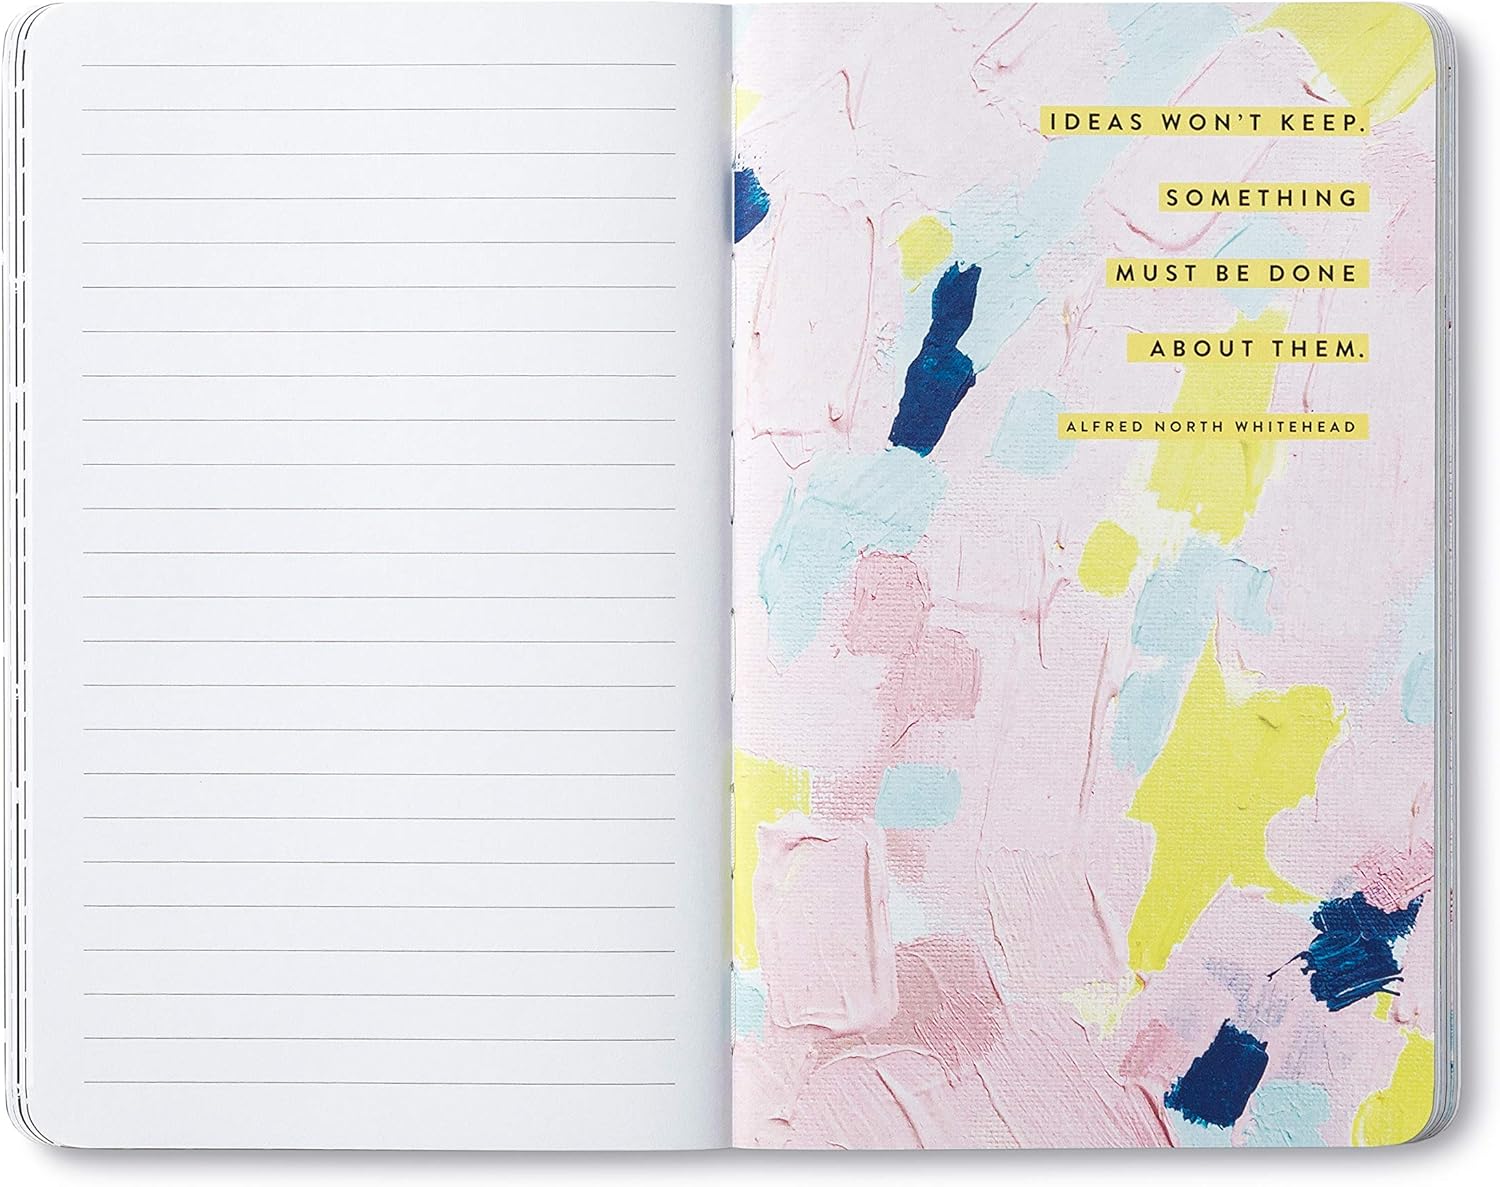 IDEAS WON'T KEEP.
SOMETHING
MUST BE DONE
ABOUT THEM.
ALFRED NORTH WHITEHEAD